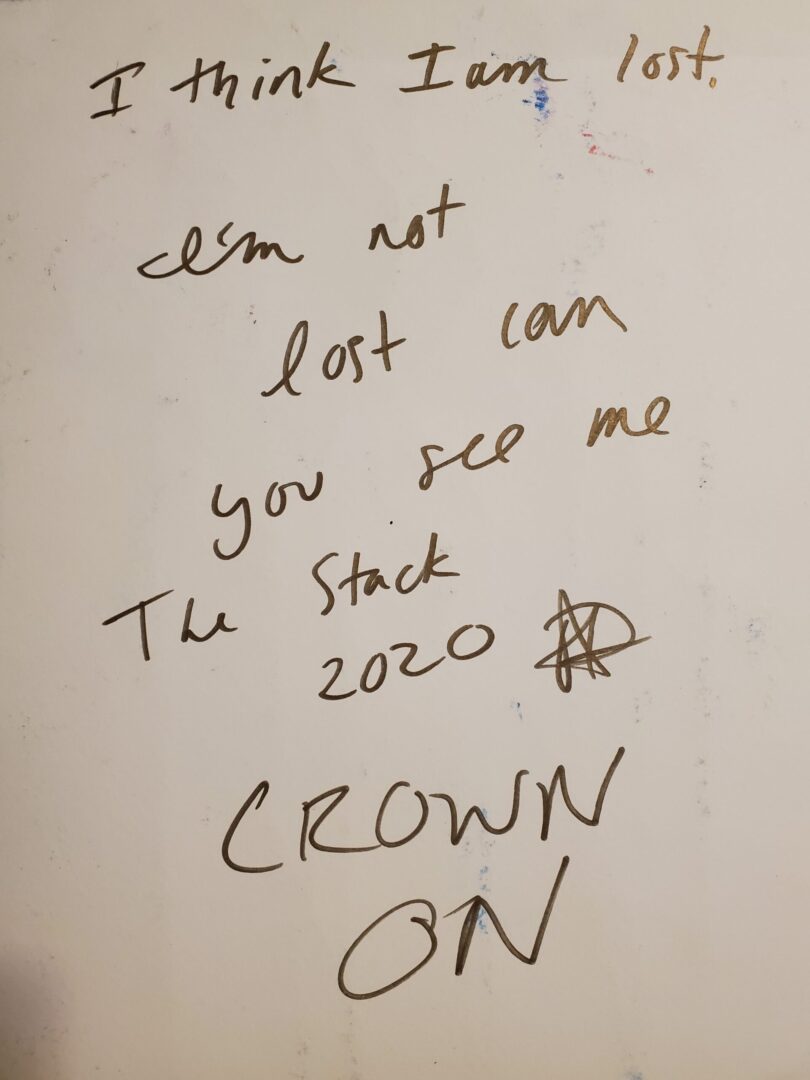 I think I am lost.
I'm not
lost can
you see me
The Stack
2020
CROWN
ON